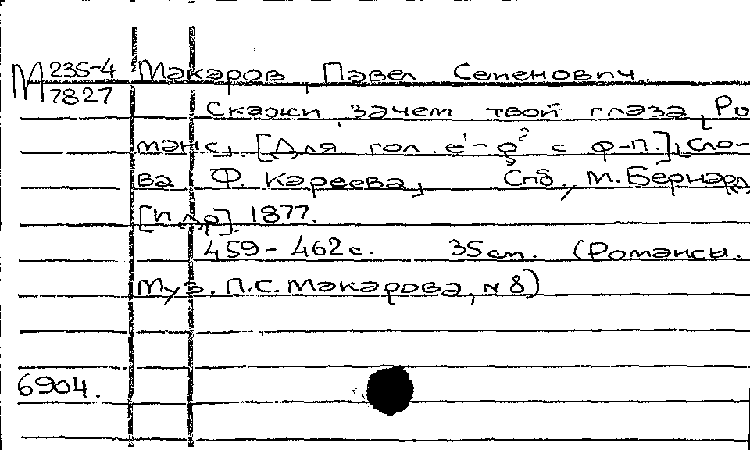 М 235-4 Макаров, Павел Семенович
7827 Скажи, зачем твои глаза. Ро-
манс. [Для гол. e¹-g² с ф-п.]. Сло-
ва Ф. Кареева. Спб., М. Бернард
[и др.] 1877.
459-462 с. 35 см. (Романсы.
Муз. П.С. Макарова, № 8)
6904.